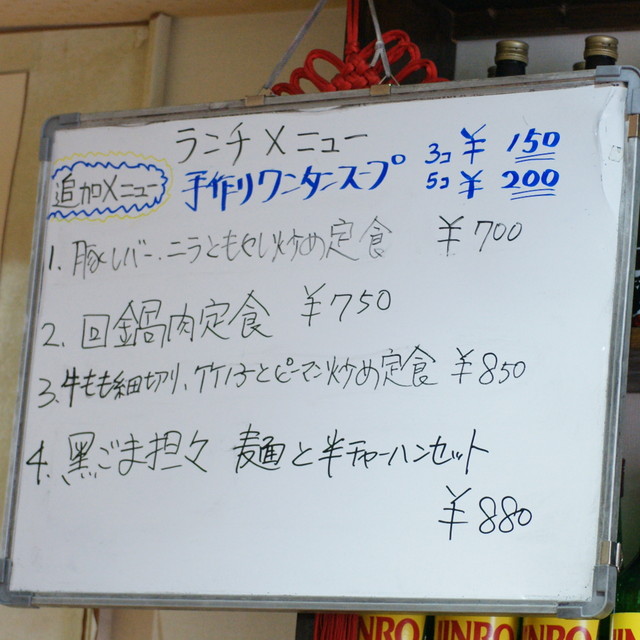 ランチメニュー
追加メニュー
手作りワンタンスープ
3コ ¥150
5コ ¥200
1. 豚レバー、ニラともやし炒め定食 ¥700
2. 回鍋肉定食 ¥750
3. 牛もも細切り、タケノ子とピーマン炒め定食 ¥850
4. 黒ごま担々麺と半チャーハンセット
¥880
JINRO
JINRO
JINRO